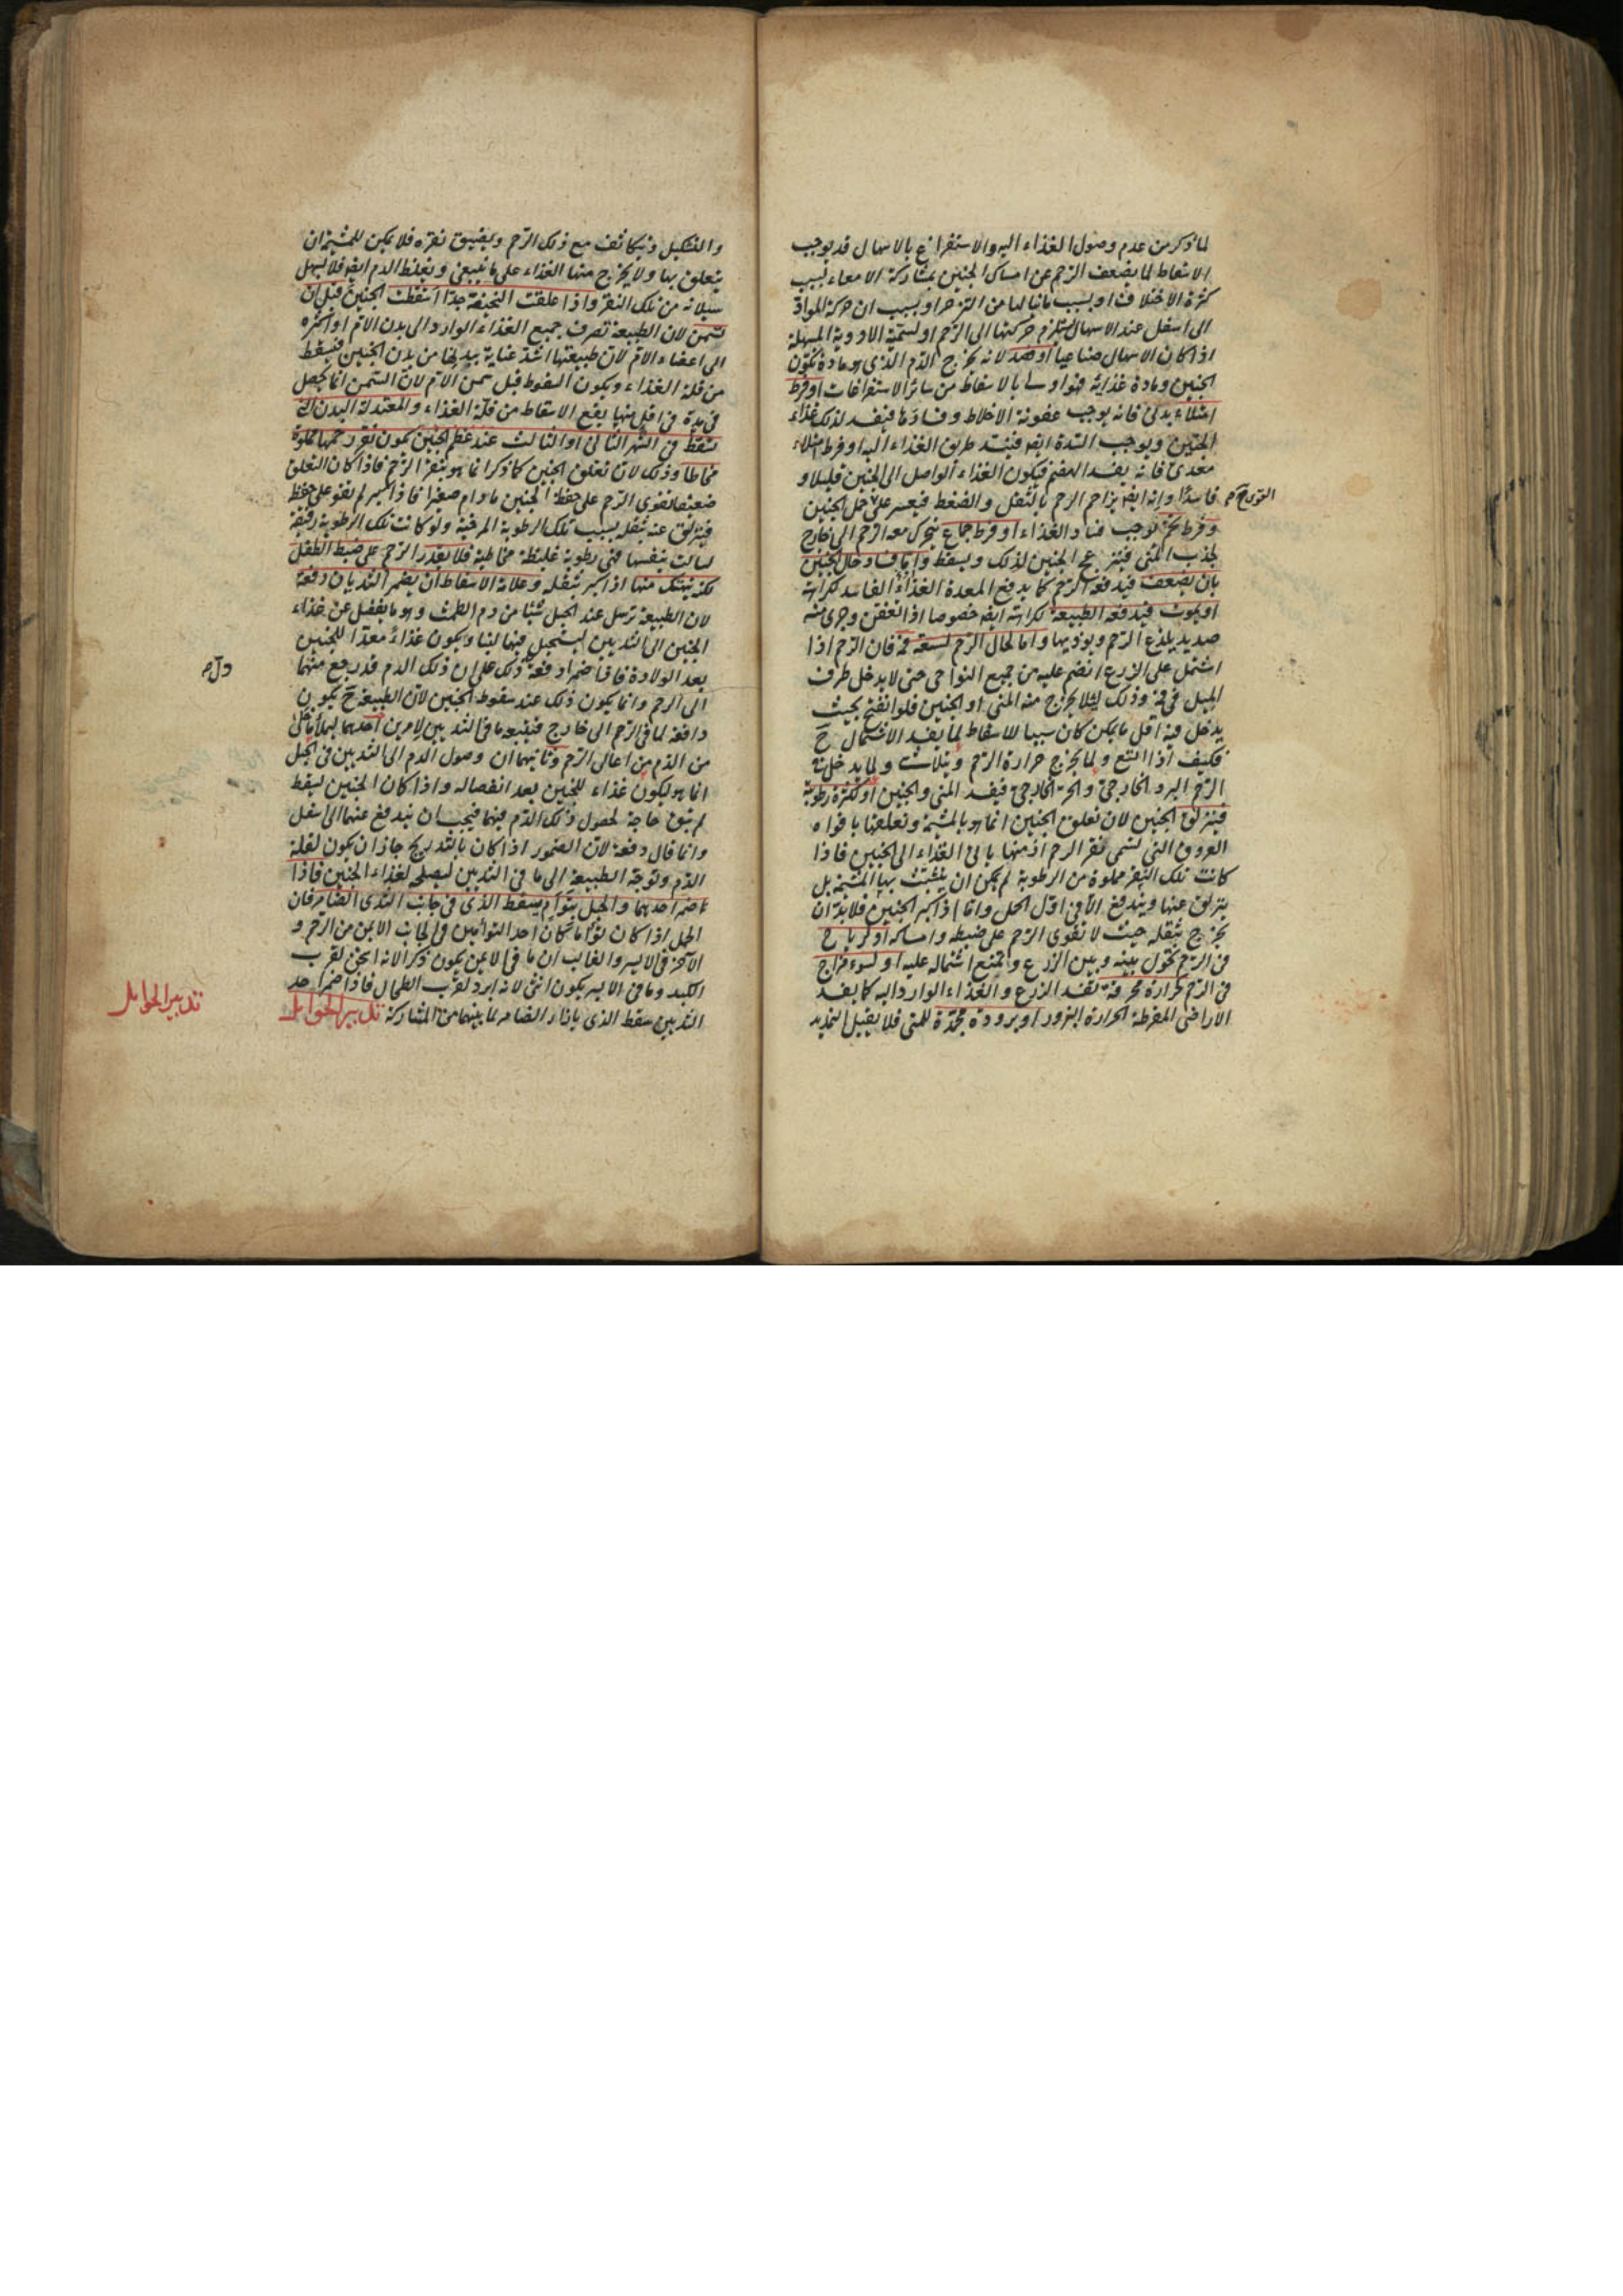 لما ذكر من عدم وصول الغذاء اليه والاستفراغ بالاسهال قد يوجب
الاسقاط لما يضعف الرحم عن امساك الجنين بمشاركة الامعاء بسبب
كثرة الاختلاف او بسبب ما ينالها من التزحر او بسبب ان حركة المواد
الى اسفل عند الاسهال يستلزم حركتها الى الرحم او لسمية الادوية المسهلة
اذا كان الاسهال صناعيا او فصد لانه يخرج الدم الذى هو مادة تكون
الجنين ومادة غذائه فهو اولى بالاسقاط من سائر الاستفراغات او فرط
امتلاء بدنى فانه يوجب عفونة الاخلاط وفسادها فيفسد لذلك غذاء
الجنين ويوجب السدة ايضا فيسد طريق الغذاء اليه او فرط امتلاء
معدى فانه يفسد الهضم فيكون الغذاء الواصل الى الجنين قليلا و
فاسدا وانه ايضا يزاحم الرحم بالثقل والضغط فيعسر عليه حمل الجنين
وفرط تخم يوجب فساد الغذاء او فرط جماع يتحرك معه الرحم الى خارج
لجذب المنى فينزعج الجنين لذلك ويسقط واما فساد حال الجنين
بان يضعف فيدفعه الرحم كما يدفع المعدة الغذاء الفاسد لكراهته
او يموت فيدفعه الطبيعة لكراهته ايضا خصوصا اذا تعفن وجرى منه
صديد يلذع الرحم ويؤذيها واما لحال الرحم لسعة فمه فان الرحم اذا
اشتمل على الزرع انضم عليه من جميع النواحى حتى لا يدخل طرف
الميل فى فمه وذلك لئلا يخرج منه المنى او الجنين فلو انفتح بحيث
يدخل فيه اقل ما يمكن كان سببا للاسقاط لما يفسد الاشتمال ح
فكيف اذا اتسع ولما يخرج حرارة الرحم ويتلاشى ولما يدخل فيه
الرحم البرد الخارجى والحر الخارجى فيفسد المنى والجنين او لكثرة رطوبة
فينزلق الجنين لان تعلق الجنين انما هو بالمشيمة وتعلقها بافواه
العروق التى تسمى نقر الرحم اذ منها ياتى الغذاء الى الجنين فاذا
كانت تلك النقر مملوة من الرطوبة لم يمكن ان يتشبث بها المشيمة بل
ينزلق عنها ويندفع اما فى اول الحمل واما اذا كبر الجنين فلا بد ان
يخرج بثقله حيث لا تقوى الرحم على ضبطه وامساكه او لرياح
فى الرحم تحول بينه وبين الزرع وتمنع اشتماله عليه او لسوء مزاج
فى الرحم لحرارة محرقة تفسد الزرع والغذاء الوارد اليه كما يفسد
الاراضى المفرطة الحرارة البزور او برودة مجمدة للمنى فلا يقبل التمديد
والتشكيل ويتكاثف مع ذلك الرحم ويضيق نقره فلا يمكن للمشيمة ان
يتعلق بها ولا يخرج منها الغذاء على ما ينبغى ويغلظ الدم ايضا فلا يسهل
سيلانه من تلك النقر واذا علقت النحيفة جدا اسقطت الجنين قبل ان
تسمن لان الطبيعة تصرف جميع الغذاء الوارد الى بدن الام او اكثره
الى اعضاء الام لان طبيعتها اشد عناية ببدنها من بدن الجنين فيسقط
من قلة الغذاء ويكون السقوط قبل سمن الام لان السمن انما يحصل
فى مدة فى اقل منها يقع الاسقاط من قلة الغذاء والمعتدلة البدن اذا
تسقط فى الشهر الثانى او الثالث عند عظم الجنين يكون نقر رحمها مملوة
مخاطا وذلك لان تعلق الجنين كما ذكر انما هو بنقر الرحم فاذا كان التعلق
ضعيفا تقوى الرحم على حفظ الجنين ما دام صغيرا فاذا كبر لم تقو على حفظه
فينزلق عنه بثقله بسبب تلك الرطوبة المرخية ولو كانت تلك الرطوبة رقيقة
لسالت بنفسها فهى رطوبة غليظة مخاطية فلا يقدر الرحم على ضبط الطفل
لكنه ينهتك منها اذا كبر بثقله وعلامة الاسقاط ان يضمر الثديان دفعة
لان الطبيعة ترسل عند الحبل شيئا من دم الطمث وهو ما يفضل عن غذاء
الجنين الى الثديين ليستحيل فيها لبنا ويكون غذاء معدا للجنين
بعد الولادة فاذا ضمرا دفعة ذلك على ان ذلك الدم قد رجع منهما
الى الرحم وانما يكون ذلك عند سقوط الجنين لان الطبيعة ح يكون
دافعة لما فى الرحم الى خارج فيتبعه ما فى الثديين لامرين احدهما ليملأ ما خلى
من الدم من اعالى الرحم وثانيهما ان وصول الدم الى الثديين فى الحبل
انما هو ليكون غذاء للجنين بعد انفصاله واذا كان الجنين ليسقط
لم يبق حاجة لحصول ذلك الدم فيهما فيجب ان يندفع عنهما الى اسفل
وانما قال دفعة لان الضمور اذا كان بالتدريج جاز ان يكون لقلة
الدم وتوجه الطبيعة الى ما فى الثديين ليصلح لغذاء الجنين فاذا
ضمر احديهما والحبل بتوأم يسقط الذى فى جانب الثدى الضامر فان
الحبل اذا كان توأما كان احد التوأمين فى الجانب الايمن من الرحم و
الآخر فى الايسر والغالب ان ما فى الايمن يكون ذكرا لانه اسخن لقرب
الكبد وما فى الايسر يكون انثى لانه ابرد لقرب الطحال فاذا ضمر احد
الثديين سقط الذى بازاء الضامر لما بينهما من المشاركة تدبير الحوامل
تدبير الحوامل